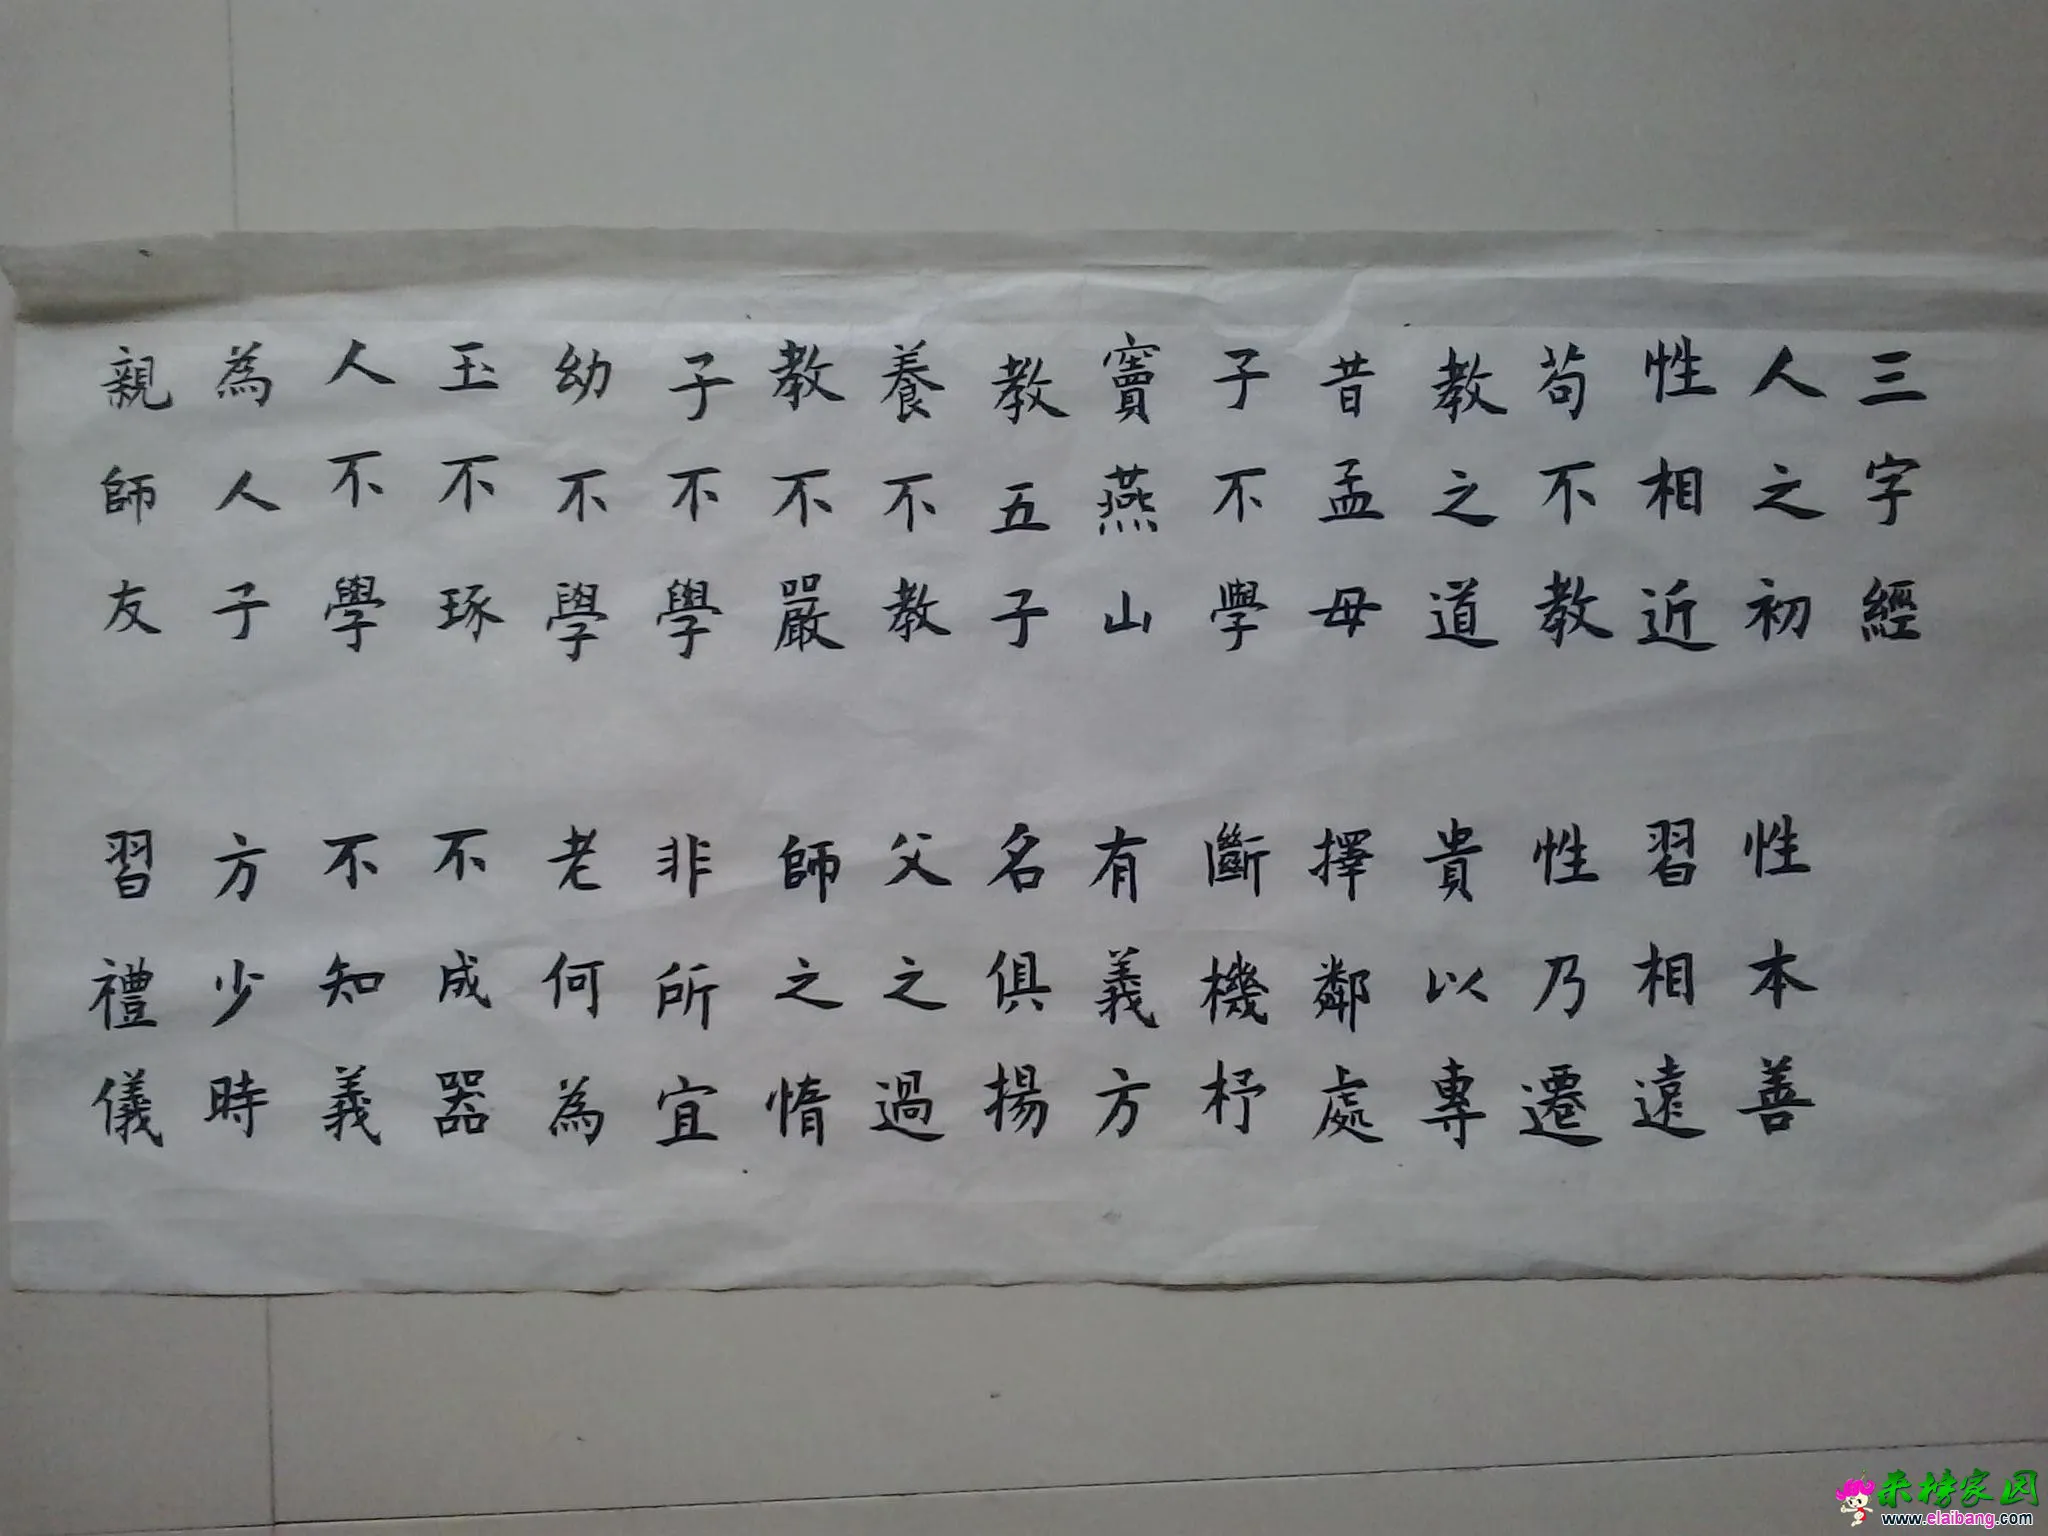 三字經
人之初 性本善
性相近 習相遠
苟不教 性乃遷
教之道 貴以專
昔孟母 擇鄰處
子不學 斷機杼
竇燕山 有義方
教五子 名俱揚
養不教 父之過
教不嚴 師之惰
子不學 非所宜
幼不學 老何為
玉不琢 不成器
人不學 不知義
為人子 方少時
親師友 習禮儀
来榜家园
www.elaibang.com